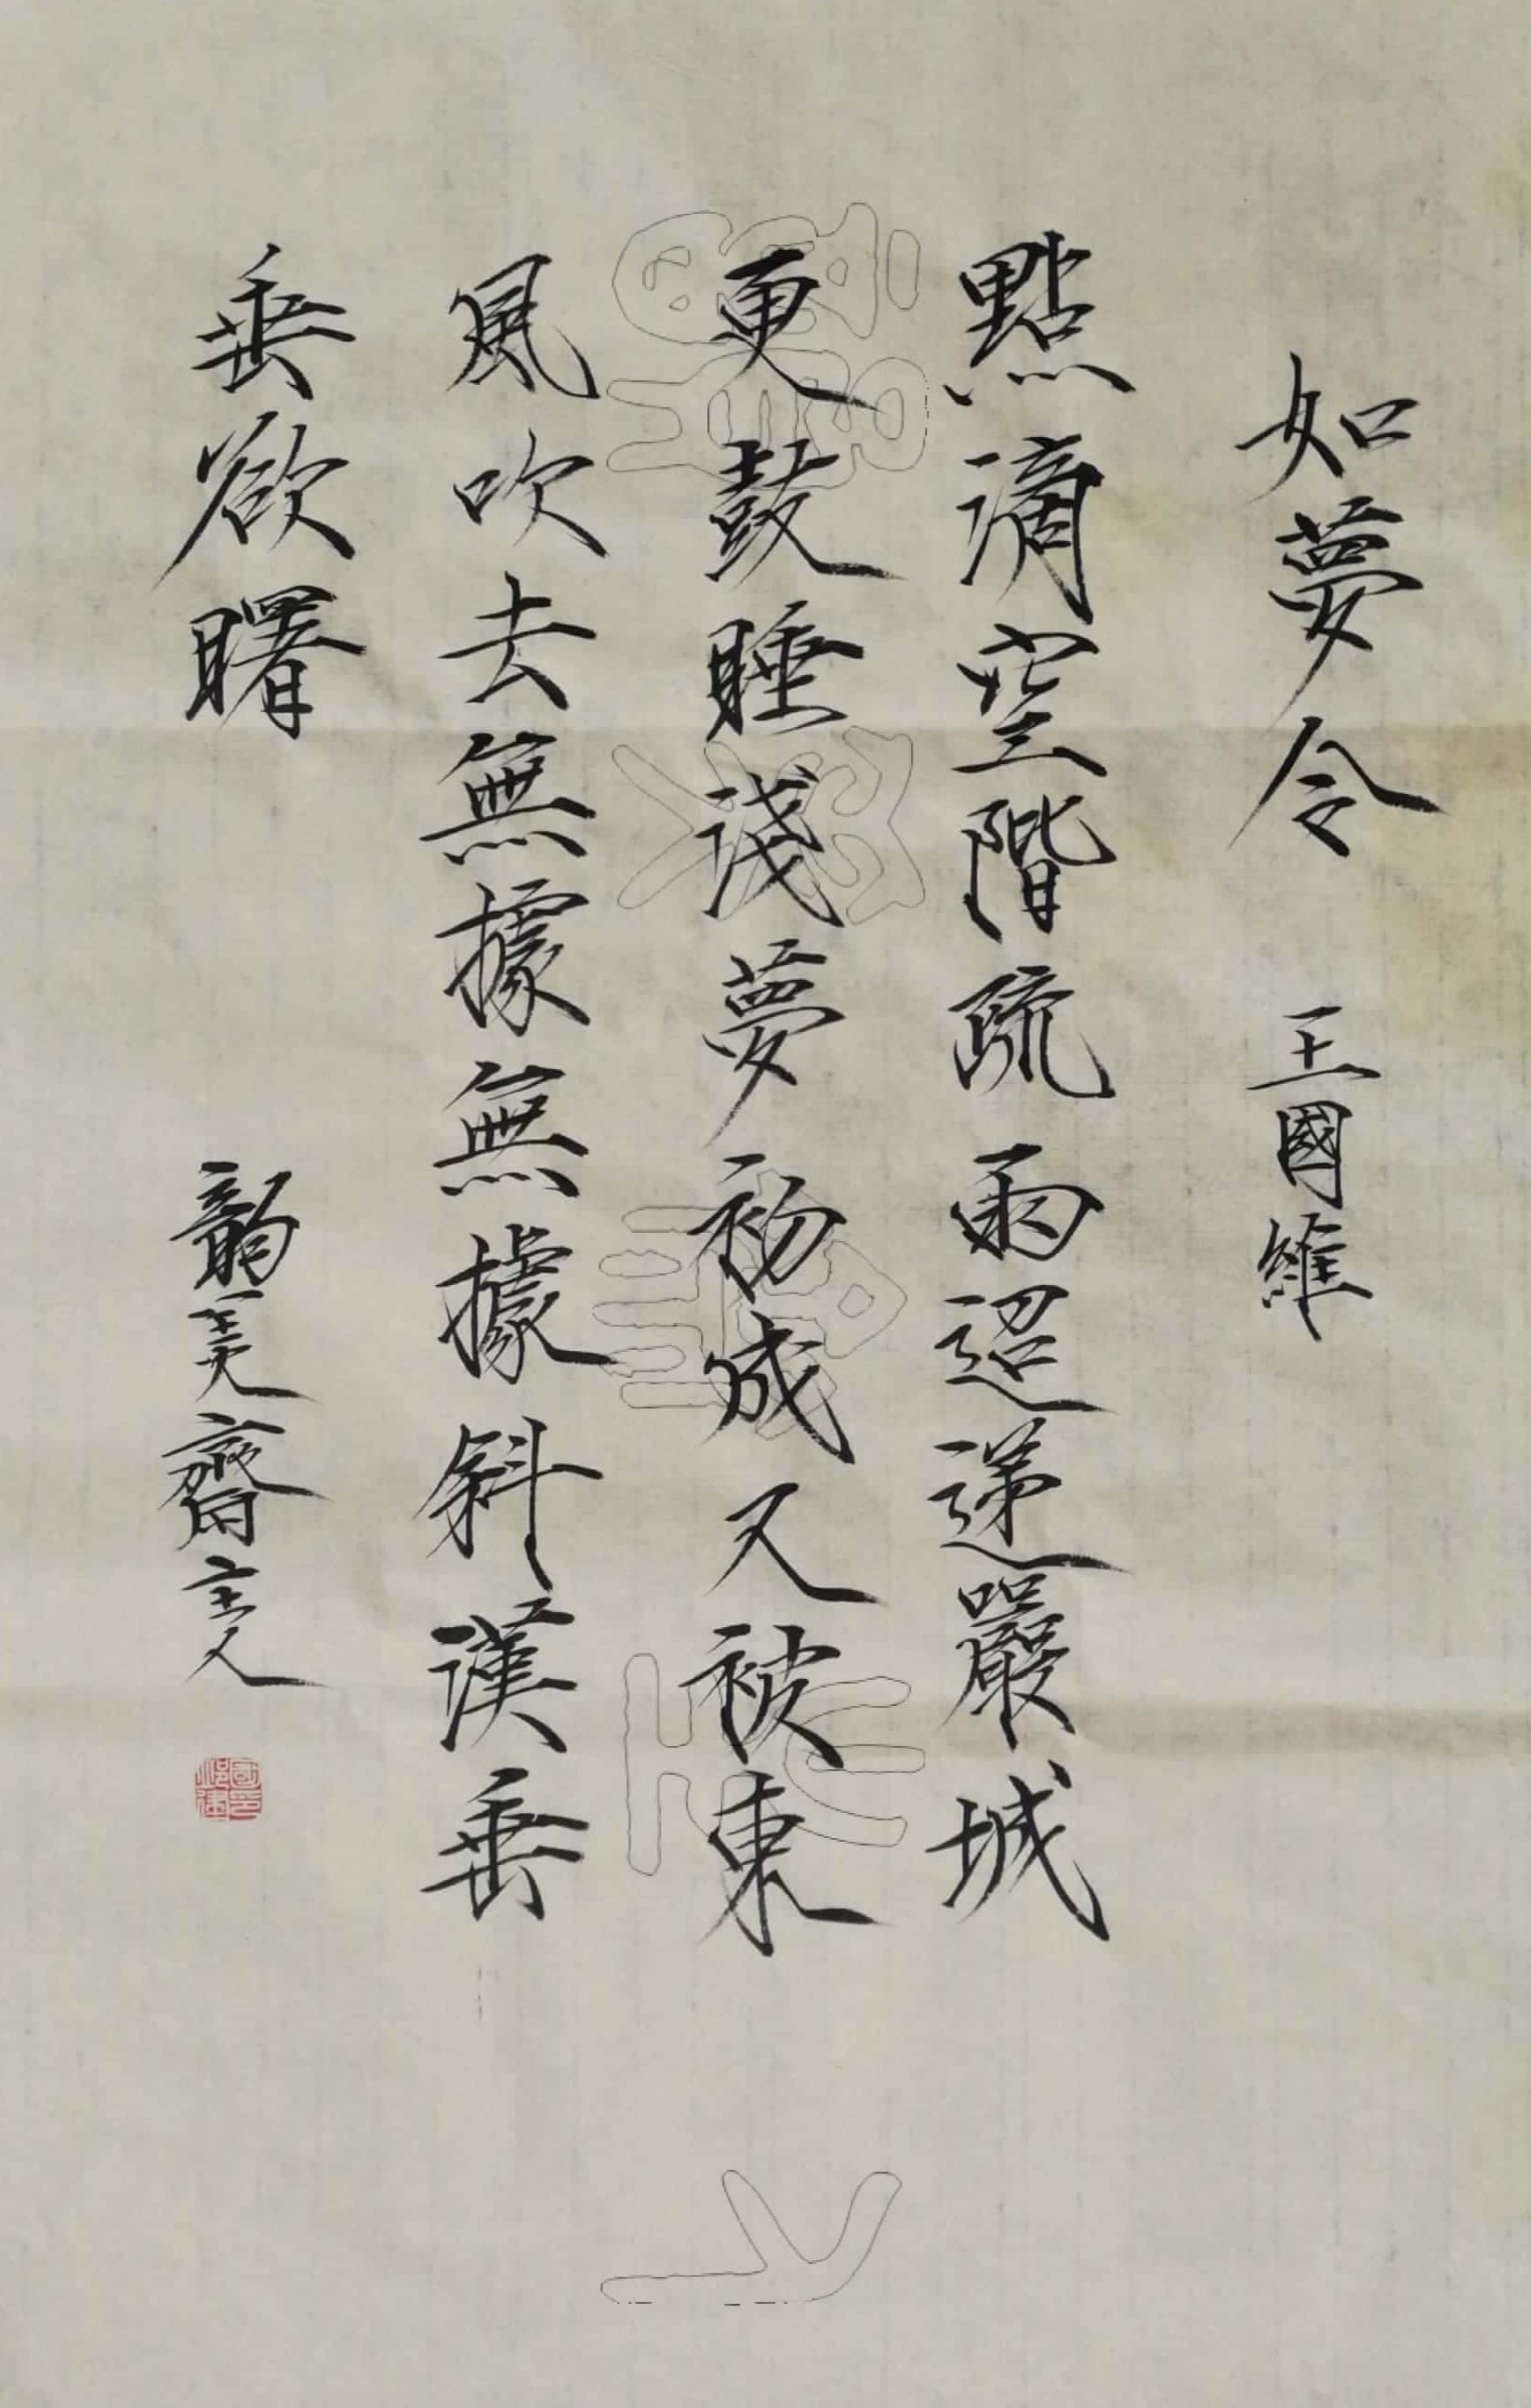 如夢令 王國維
點滴空階疏雨迢遞嚴城
更鼓睡淺夢初成又被東
風吹去無據無據斜漢垂
垂欲曙
韵美齋主人